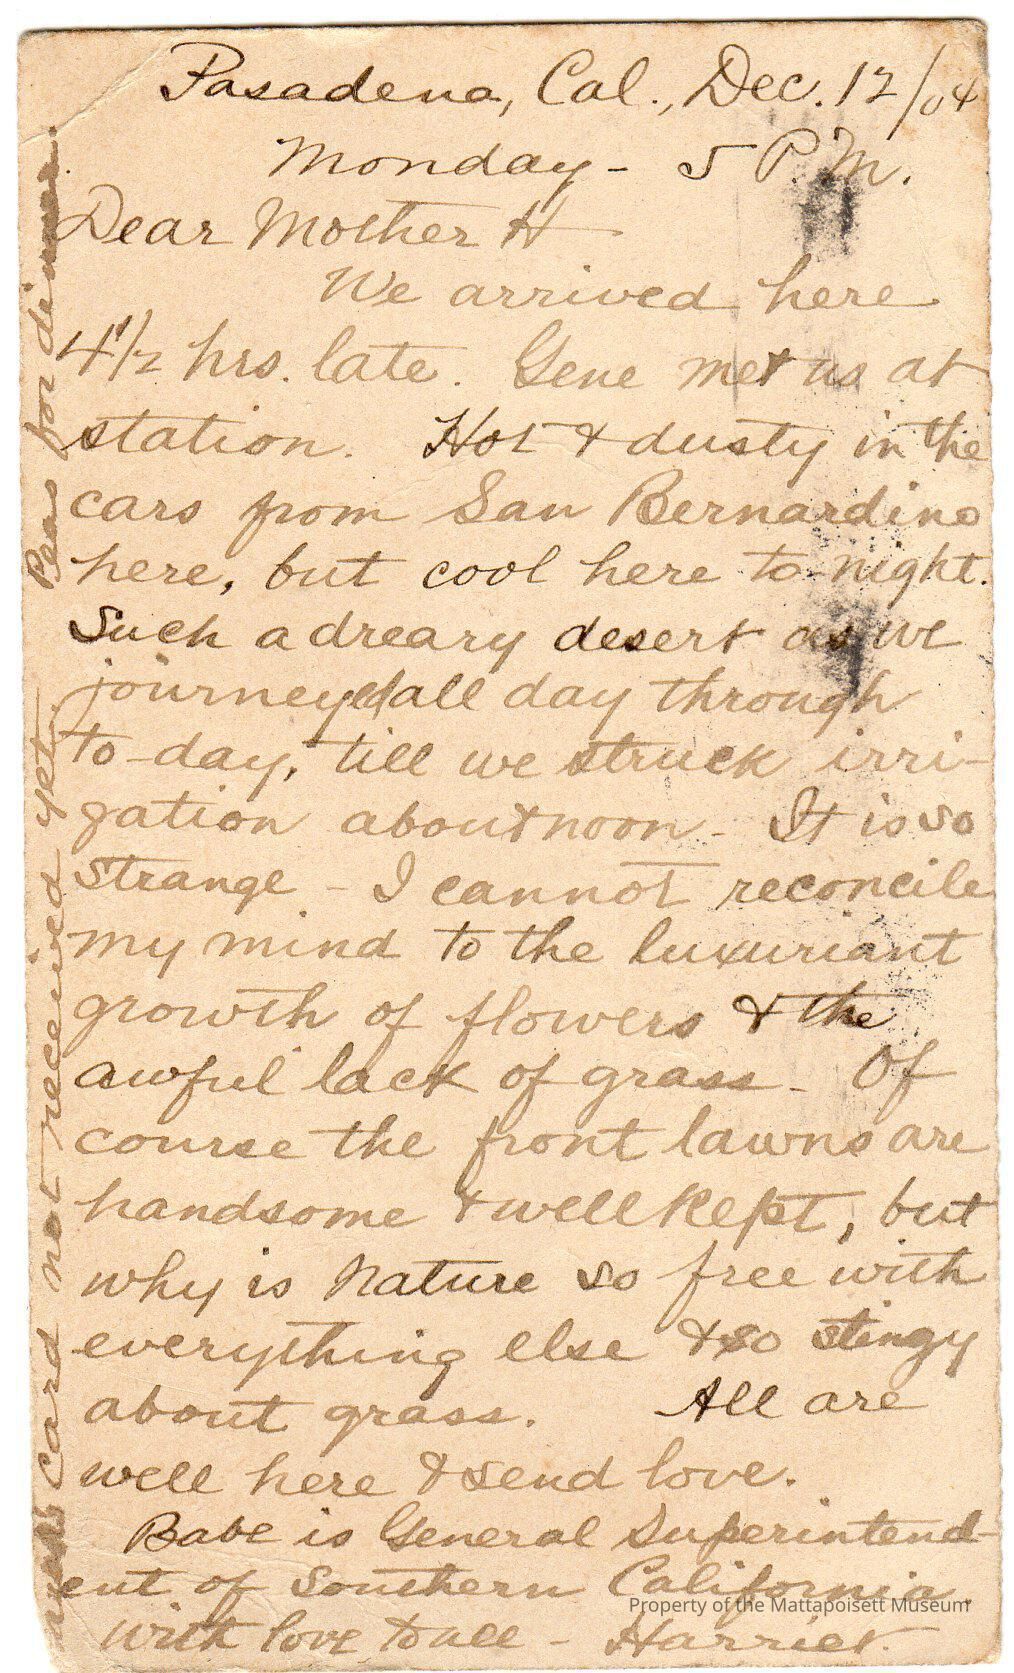 Pasadena, Cal., Dec. 12/04
Monday - 5 P.M.
Dear Mother H
We arrived here
4 1/2 hrs. late. Gene met us at
station. Hot & dusty in the
cars from San Bernardino
here, but cool here to-night.
Such a dreary desert as we
journeyed all day through
to-day, till we struck irri-
gation about noon - It is so
strange - I cannot reconcile
my mind to the luxuriant
growth of flowers & the
awful lack of grass - Of
course the front lawns are
handsome & well kept, but
why is Nature so free with
everything else & so stingy
about grass. All are
well here & send love.
Babe is General Superintend-
ent of Southern California
With love to all - Harriet.
Card not received yet. Peas for dinner.
Property of the Mattapoisett Museum